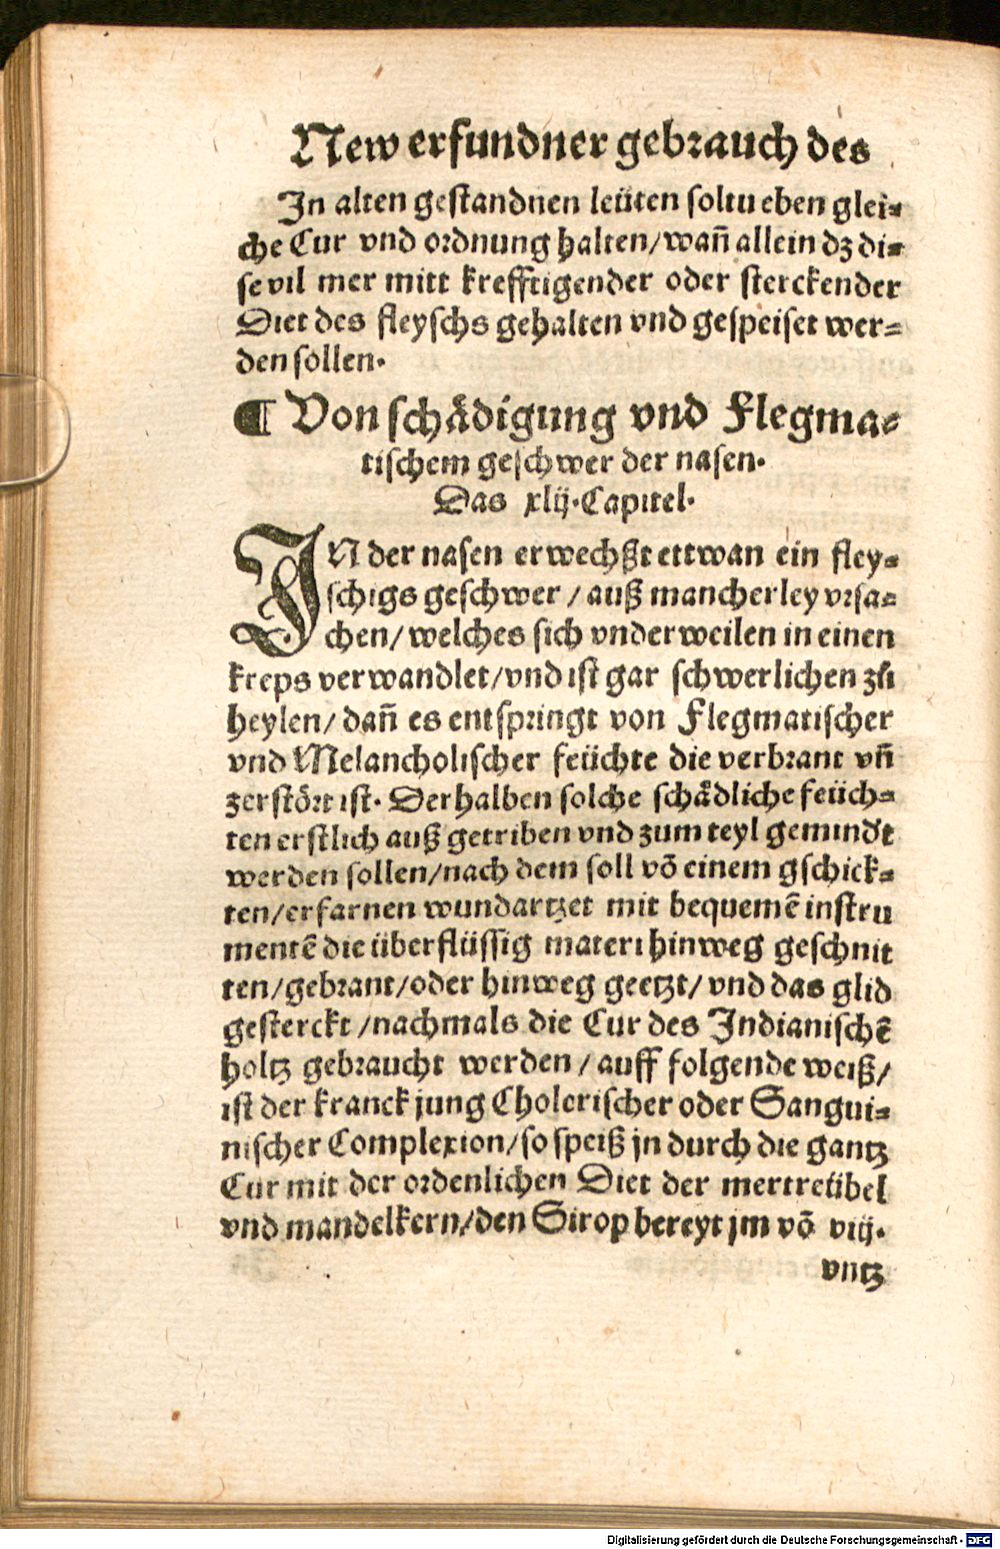 New erfundner gebrauch des
In alten gestandnen leüten soltu eben glei⸗
che Cur vnd ordnung halten/wañ allein dz di⸗
se vil mer mitt krefftigender oder sterckender
Diet des fleyschs gehalten vnd gespeiset wer⸗
den sollen.
¶ Von schådigung vnd Flegma⸗
tischem geschwer der nasen.
Das xlij. Capitel.
IN der nasen erwechßt ettwan ein fley⸗
schigs geschwer / auß mancherley vrsa⸗
chen/ welches sich vnderweilen in einen
kreps verwandlet/vnd ist gar schwerlichen zů
heylen/ dañ es entspringt von Flegmatischer
vnd Melancholischer feüchte die verbrant vñ
zerstört ist. Derhalben solche schådliche feüch⸗
ten erstlich auß getriben vnd zum teyl gemindt
werden sollen/nach dem soll võ einem gschick⸗
ten/erfarnen wundartzet mit bequemẽ instru
mentẽ die überflüssig materi hinweg geschnit
ten/gebrant/oder hinweg geetzt/ vnd das glid
gesterckt /nachmals die Cur des Indianischẽ
holtz gebraucht werden / auff folgende weiß/
ist der kranck jung Cholerischer oder Sangui⸗
nischer Complexion/so speiß jn durch die gantz
Cur mit der ordenlichen Diet der mertreübel
vnd mandelkern/den Sirop bereyt jm võ viij.
vntz
Digitalisierung gefördert durch die Deutsche Forschungsgemeinschaft - DFG